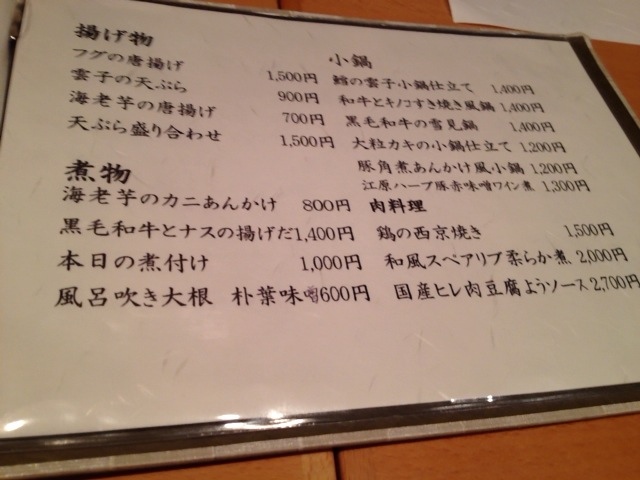 揚げ物
フグの唐揚げ 1,500円
雲子の天ぷら 900円
海老芋の唐揚げ 700円
天ぷら盛り合わせ 1,500円
煮物
海老芋のカニあんかけ 800円
黒毛和牛とナスの揚げだ1,400円
本日の煮付け 1,000円
風呂吹き大根 朴葉味噌600円
小鍋
鱈の雲子小鍋仕立て 1,400円
和牛とキノコすき焼き風鍋 1,400円
黒毛和牛の雪見鍋 1,400円
大粒カキの小鍋仕立て 1,200円
豚角煮あんかけ風小鍋 1,200円
江原ハーブ豚赤味噌ワイン煮 1,300円
肉料理
鶏の西京焼き 1,500円
和風スペアリブ柔らか煮 2,000円
国産ヒレ肉豆腐ようソース 2,700円